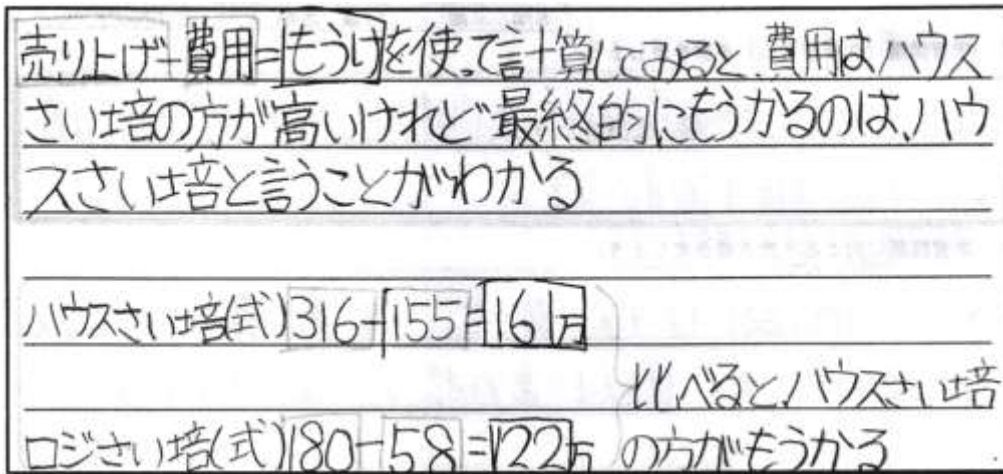 売り上げ-費用=もうけを使って計算してみると、費用はハウス
さい培の方が高いけれど最終的にもうかるのは、ハウ
スさい培と言うことがわかる
ハウスさい培(式)316-155=161万
比べると、ハウスさい培
ロジさい培(式)180-58=122万 の方がもうかる